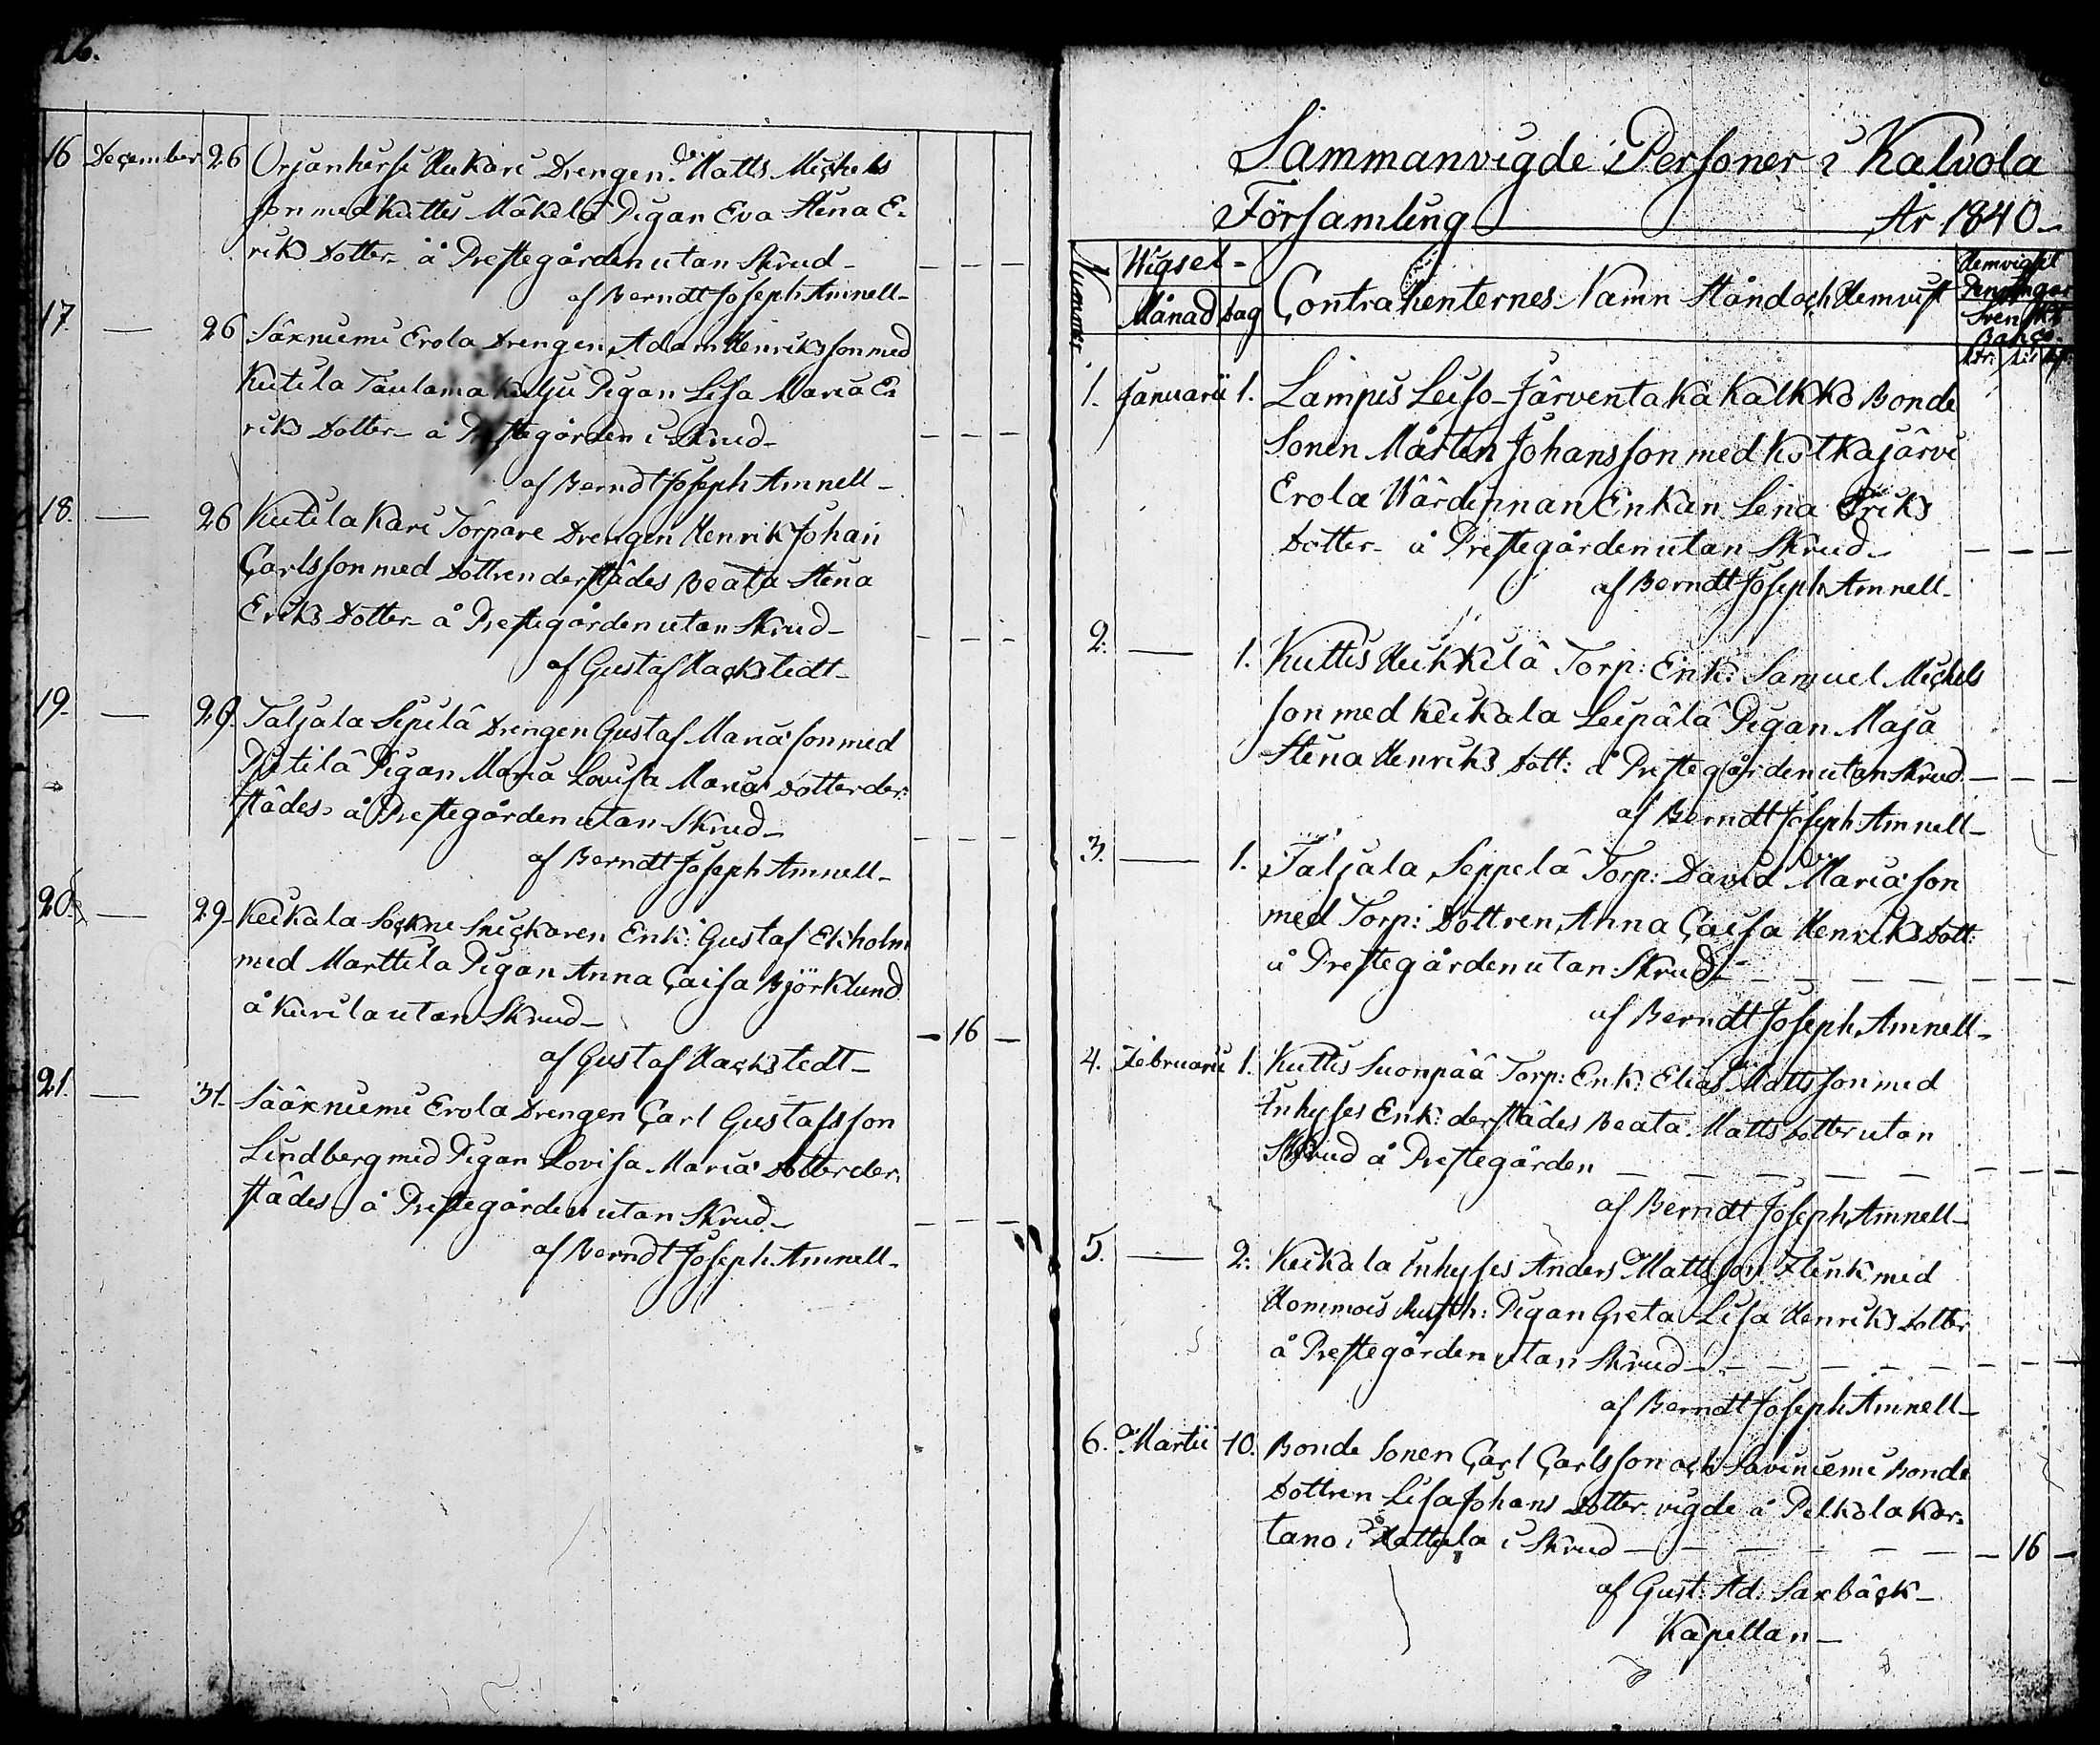 26.
16 December 26 Orjanhirsi Uukari Drengen Matts Michels
son med Kuttis Mäkelä Pigan Eva Stina E-
riks Dotter å Prestegården utan Skrud — — —
af Berndt Joseph Amnell
17. — 26 Säxniemi Erola Drengen Adam Henriksson med
Kutila Taulama Pigan Lisa Maria E-
riks Dotter å Prestegården i Skrud — — —
af Berndt Joseph Amnell
18. — 26 Kutila Kari Torpare Drengen Henrik Johan
Carlsson med Dottren derstädes Beata Stina
Eriks Dotter å Prestegården utan Skrud — — —
af Gustaf Hackstedt
19. — 29. Taljala Sipilä Drengen Gustaf Mariæ son med
Pigan Maria Lovisa Mariæ Dotter der-
städes å Prestegården utan Skrud — — —
af Berndt Joseph Amnell
20. — 29. Keikala Sockne Snickaren Enk: Gustaf Ekholm
med Marttila Pigan Anna Caisa Björklund
å Kurila utan Skrud — 16 —
af Gustaf Hackstedt
21. — 31. Sääxniemi Erola Drengen Carl Gustafsson
Lindberg med Pigan Lovisa Mariæ Dotter der-
städes å Prestegården utan Skrud — — —
af Berndt Joseph Amnell
Sammanvigde Personer i Kalvola
Församling År 1840
Nummer Wigsel- Contrahenternes Namn Stånd och Hemvist Hemvigsel
Månad Dag Penningar
Svenskt
Banco
1. Januarii 1. Lampis Leiso Järventaka Kalkko Bonde
Sonen Mårten Johansson med Kotkajärvi
Erola Wärdinnan Enkan Lena Eriks
Dotter å Prestegården utan Skrud — — —
af Berndt Joseph Amnell
2. — 1. Kuttis Heikkilä Torp: Enk: Samuel Michels
son med Keikala Leipälä Pigan Maja
Stina Henriks Dott: å Prestegården utan Skrud — — —
af Berndt Joseph Amnell
3. — 1. Taljala Seppelä Torp: David Mariæ son
med Torp: Dottren Anna Caisa Henriks Dott:
å Prestegården utan Skrud — — —
af Berndt Joseph Amnell
4. Februarii 1. Kuttis Suonpää Torp: Enk: Elias Mattsson med
Inhyses Enk: derstädes Beata Matts Dotter utan
Skrud å Prestegården — — —
af Berndt Joseph Amnell
5. — 2. Keikala Inhyses Anders Mattsson Flink med
Hommois Rusth: Pigan Greta Lisa Henriks Dotter
å Prestegården utan Skrud — — —
af Berndt Joseph Amnell
6. Martii 10. Bonde Sonen Carl Carlsson och Saviniemi Bonde
Dottren Lisa Johans Dotter vigde å Pelkola Kar-
tano i Hattula i Skrud — 16 —
af Gust: Ad: Saxbäck
Kapellan